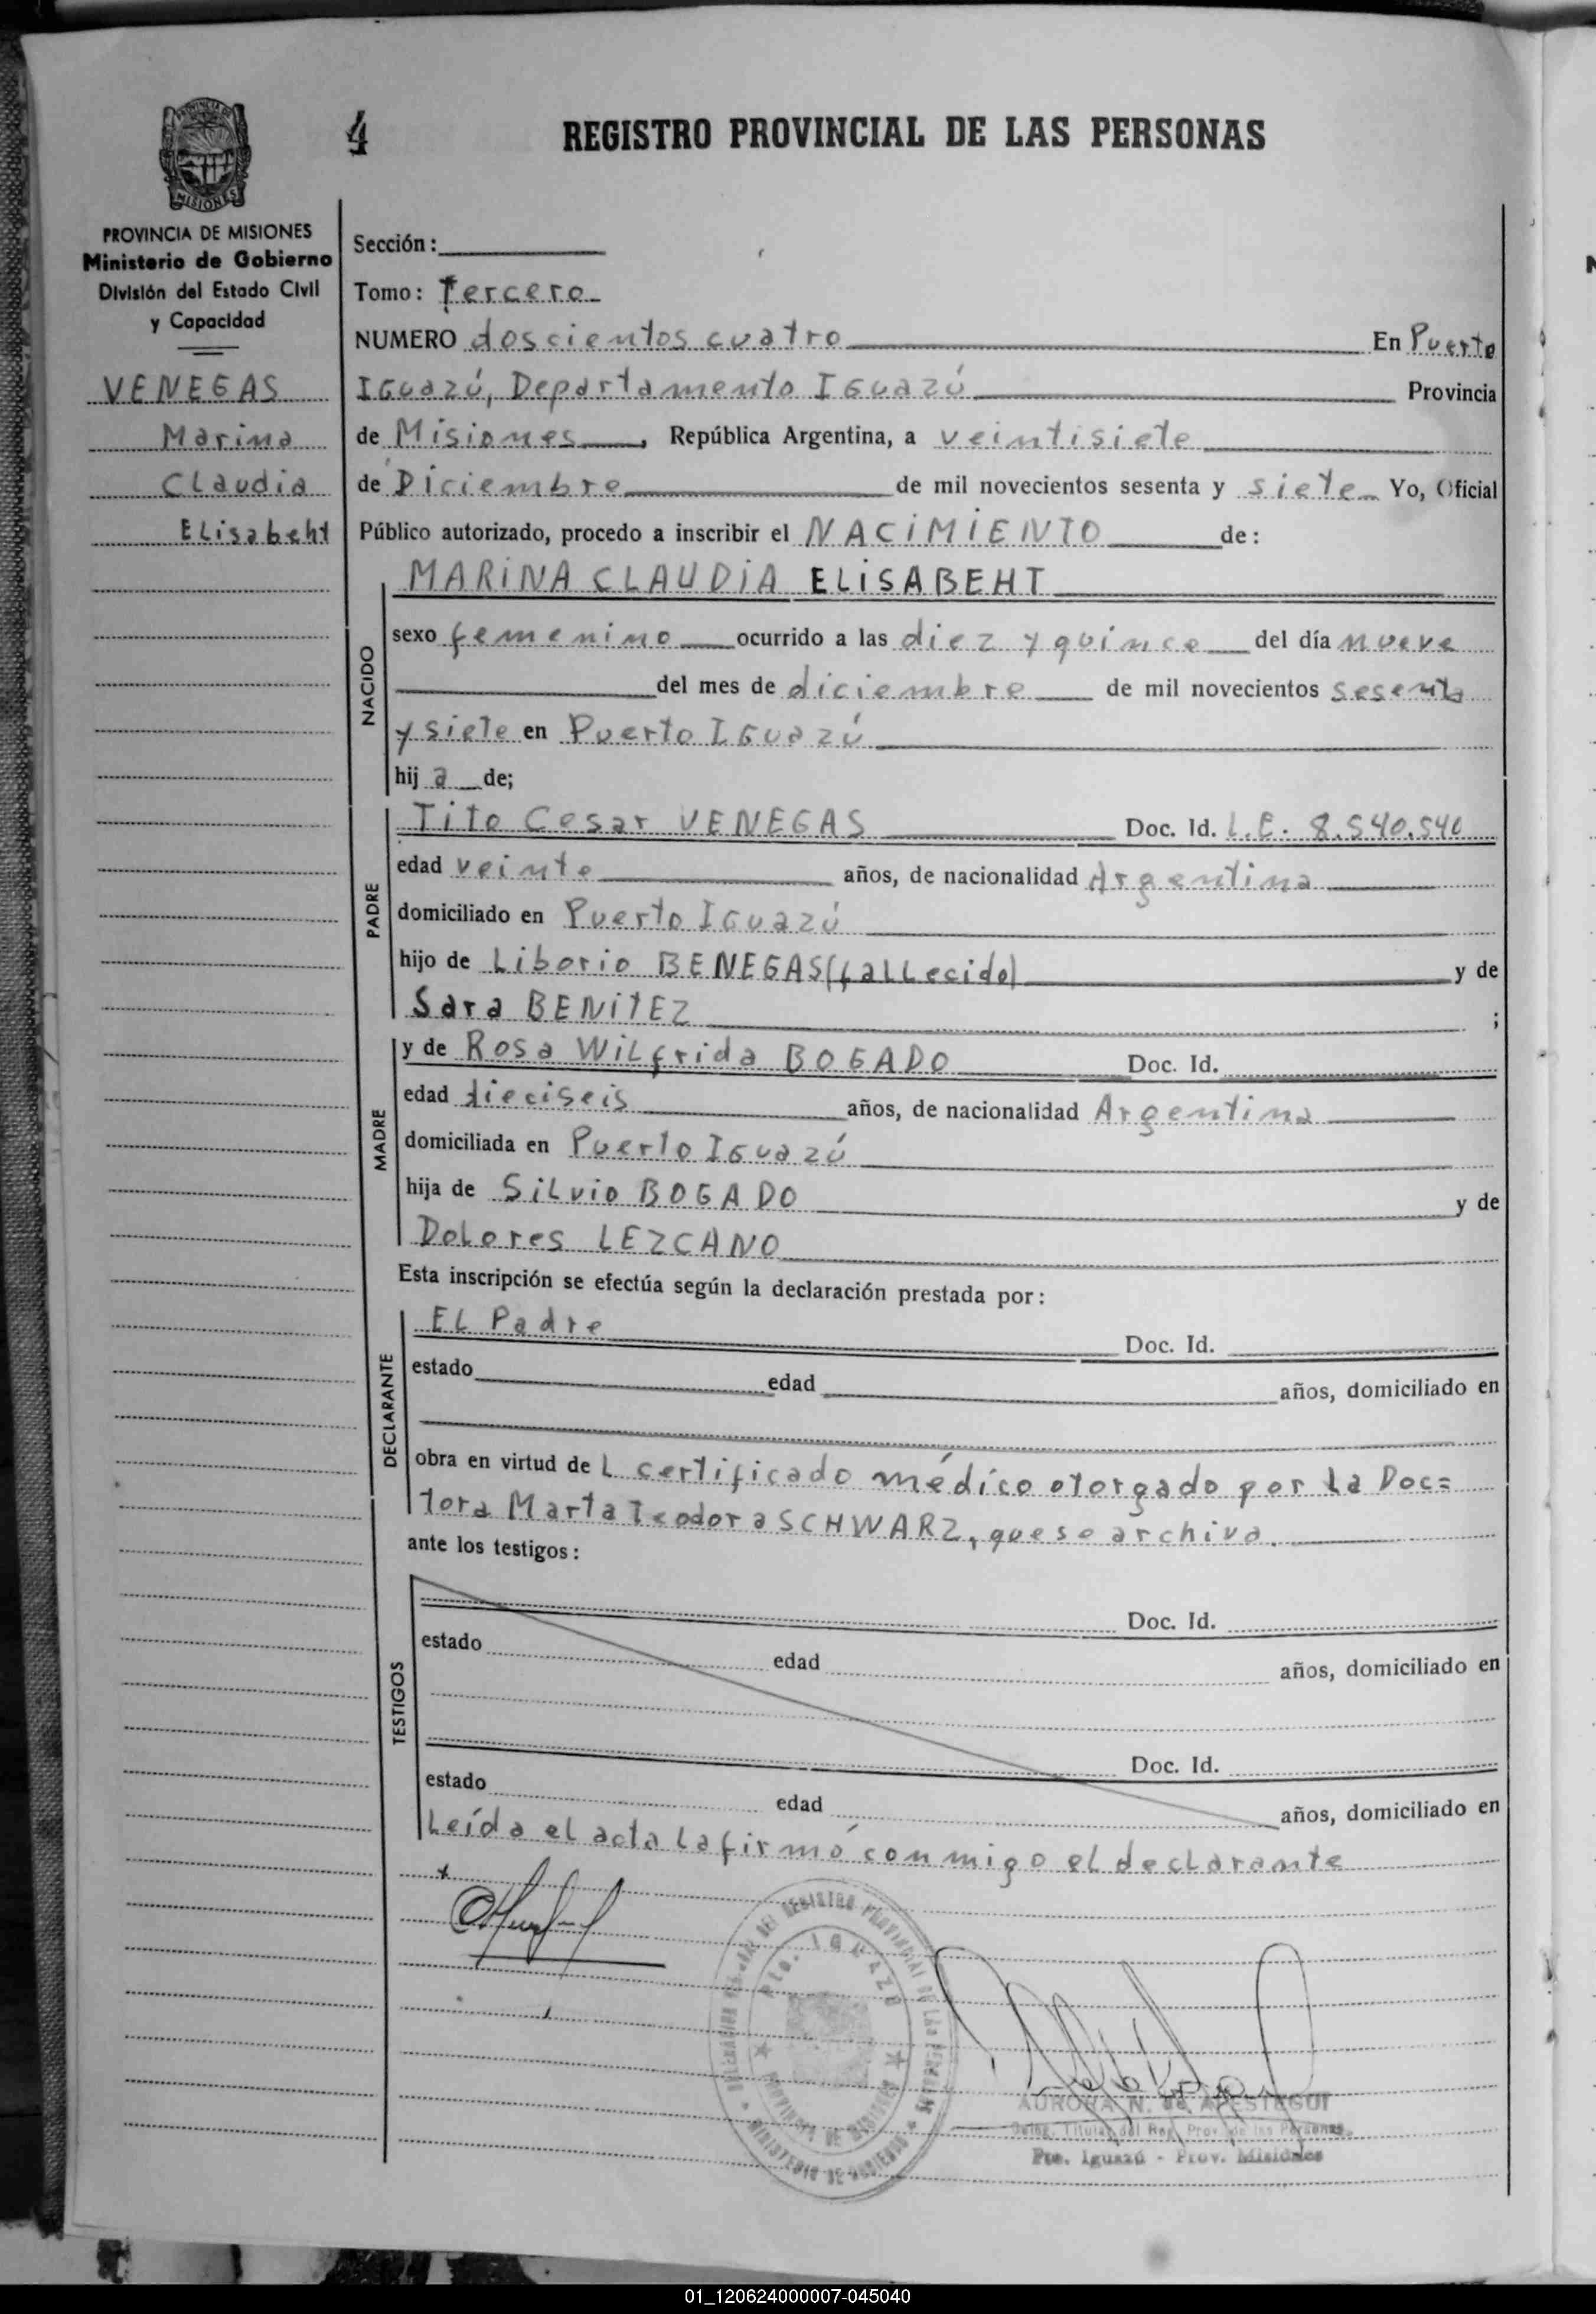 4
REGISTRO PROVINCIAL DE LAS PERSONAS
PROVINCIA DE MISIONES
MISIONES
PROVINCIA DE MISIONES
Ministerio de Gobierno
División del Estado Civil
y Capacidad
VENEGAS
Marina
Claudia
Elisabeht
Sección:
Tomo: Tercero
NUMERO doscientos cuatro En Puerto
Iguazú, Departamento Iguazú Provincia
de Misiones, República Argentina, a veintisiete
de Diciembre de mil novecientos sesenta y siete Yo, Oficial
Público autorizado, procedo a inscribir el NACIMIENTO de:
MARINA CLAUDIA ELISABEHT
NACIDO
sexo femenino ocurrido a las diez y quince del día nueve
del mes de diciembre de mil novecientos sesenta
y siete en Puerto Iguazú
hij a de;
PADRE
Tito Cesar VENEGAS Doc. Id. L.E. 8.540.540
edad veinte años, de nacionalidad Argentina
domiciliado en Puerto Iguazú
hijo de Liborio BENEGAS (fallecido) y de
Sara BENITEZ ;
MADRE
y de Rosa Wilfrida BOGADO Doc. Id.
edad dieciseis años, de nacionalidad Argentina
domiciliada en Puerto Iguazú
hija de Silvio BOGADO y de
Dolores LEZCANO
Esta inscripción se efectúa según la declaración prestada por:
DECLARANTE
El Padre Doc. Id.
estado edad años, domiciliado en
obra en virtud de l certificado médico otorgado por la Doc=
tora Marta Teodora SCHWARZ, que se archiva.
ante los testigos:
TESTIGOS
Doc. Id.
estado edad años, domiciliado en
Doc. Id.
estado edad años, domiciliado en
Leída el acta la firmó conmigo el declarante
REGISTRO PROVINCIAL DE LAS PERSONAS
Pto. IGUAZU
PROVINCIA DE MISIONES
MINISTERIO DE GOBIERNO
AURORA N. de APESTEGUI
Deleg. Titular del Reg. Prov. de las Personas
Pto. Iguazú - Prov. Misiones
01_120624000007-045040